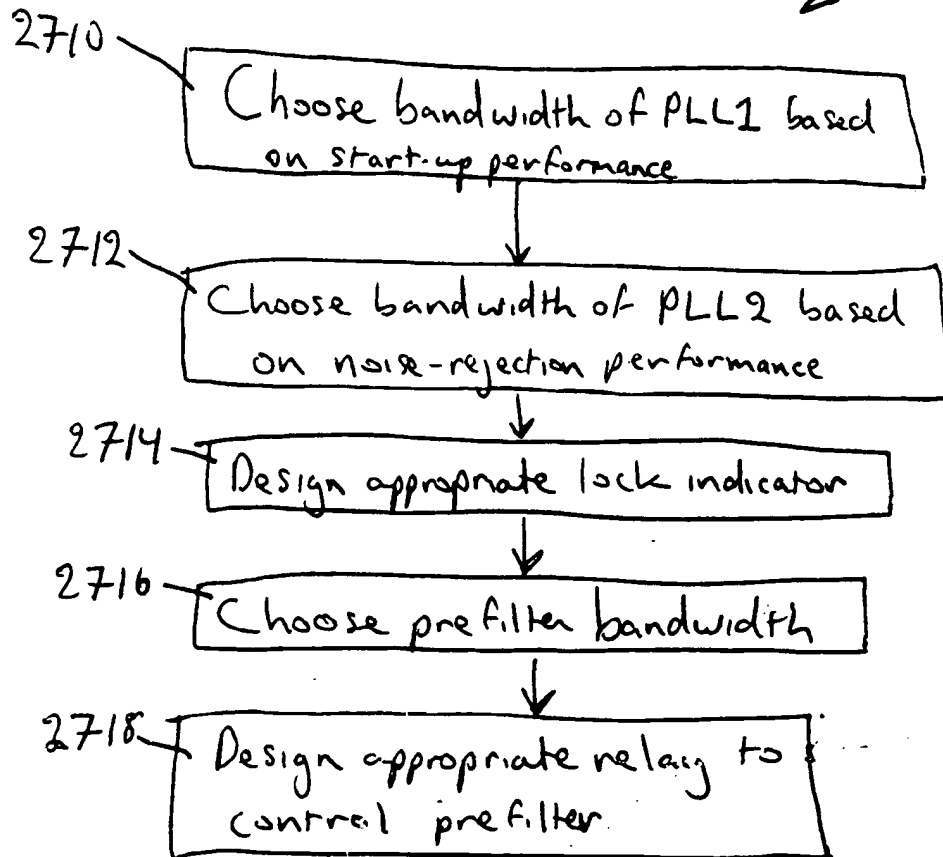 2710
Choose bandwidth of PLL1 based
on start-up performance
2712
Choose bandwidth of PLL2 based
on noise-rejection performance
2714
Design appropriate lock indicator
2716
Choose prefilter bandwidth
2718
Design appropriate relay to
control prefilter